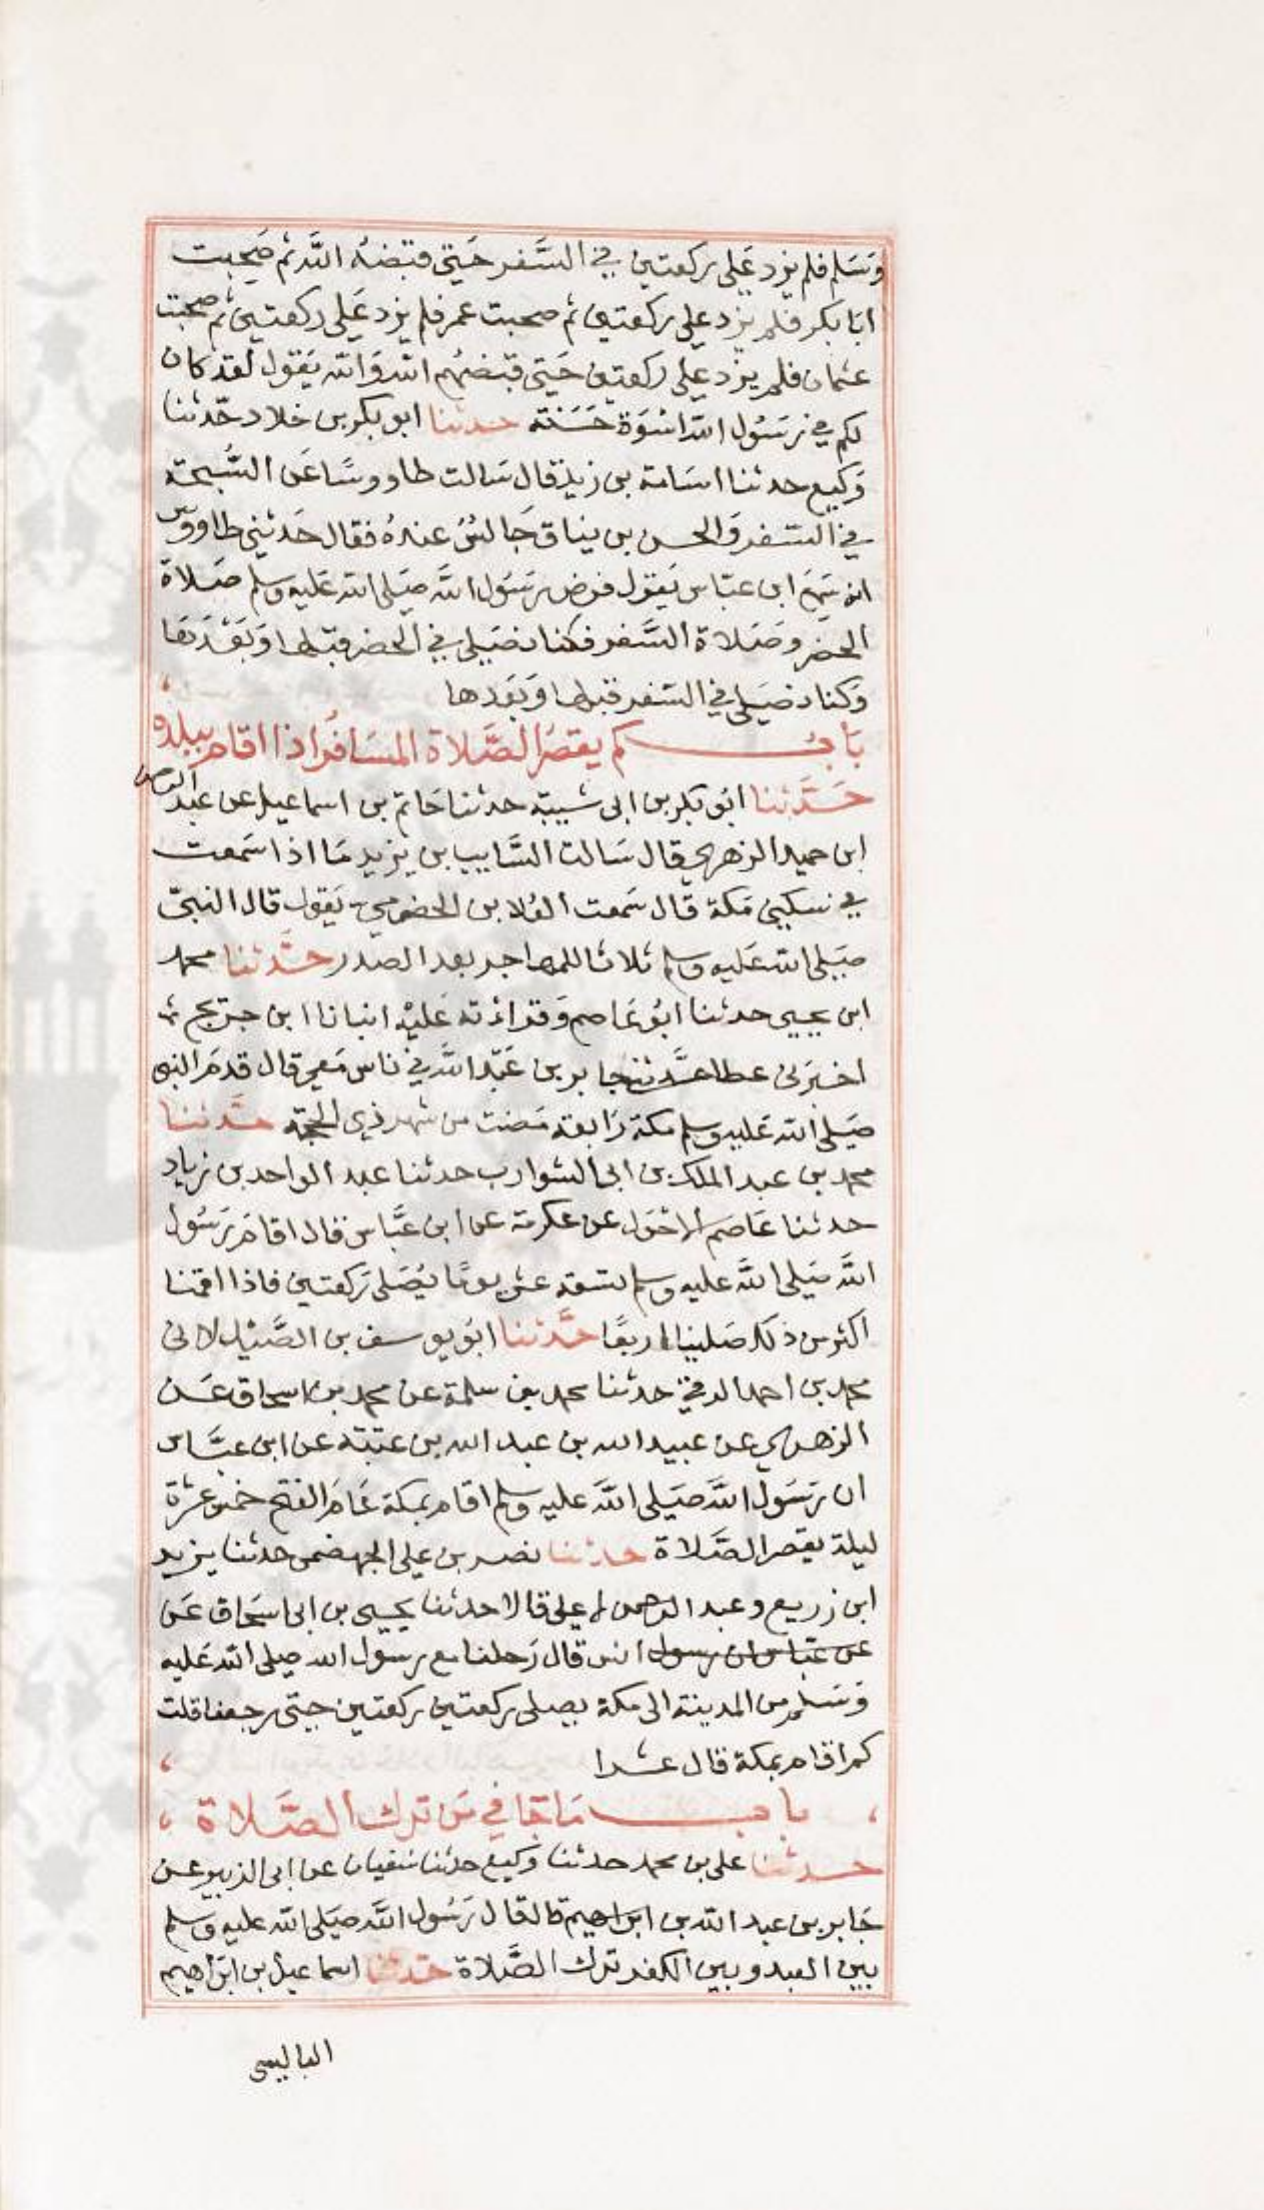 وسلم فلم يزد على ركعتين في السفر حتى قبضه الله ثم صحبت
ابا بكر فلم يزد على ركعتين ثم صحبت عمر فلم يزد على ركعتين ثم صحبت
عثمان فلم يزد على ركعتين حتى قبضهم الله والله يقول لقد كان
لكم في رسول الله اسوة حسنة حدثنا ابو بكر بن خلاد حدثنا
وكيع حدثنا اسامة بن زيد قال سالت طاووسا عن السبحة
في السفر والحسن بن يناق جالس عنده فقال حدثني طاووس
انه سمع ابن عباس يقول فرض رسول الله صلى الله عليه وسلم صلاة
الحضر وصلاة السفر فكنا نصلي في الحضر قبلها وبعدها
وكنا نصلي في السفر قبلها وبعدها
باب كم يقصر الصلاة المسافر اذا اقام ببلده
حدثنا ابو بكر بن ابي شيبة حدثنا حاتم بن اسماعيل عن عبد الرحمن
ابن حميد الزهري قال سالت السايب بن يزيد ما اذا سمعت
في سكنى مكة قال سمعت العلا بن الحضرمي يقول قال النبي
صلى الله عليه وسلم ثلاثا للمهاجر بعد الصدر حدثنا محمد
ابن يحيى حدثنا ابو عاصم وقراءته عليه انبانا ابن جريج
اخبرني عطا حدثني جابر بن عبد الله في ناس معي قال قدم النبي
صلى الله عليه وسلم مكة رابعة مضت من شهر ذي الحجة حدثنا
محمد بن عبد الملك بن ابي الشوارب حدثنا عبد الواحد بن زياد
حدثنا عاصم الاحول عن عكرمة عن ابن عباس قال اقام رسول
الله صلى الله عليه وسلم تسعة عشر يوما يصلي ركعتين فاذا اقمنا
اكثر من ذلك صلينا اربعا حدثنا ابو يوسف بن الصيدلاني
محمد بن احمد الرقي حدثنا محمد بن سلمة عن محمد بن اسحاق عن
الزهري عن عبيد الله بن عبد الله بن عتبة عن ابن عباس
ان رسول الله صلى الله عليه وسلم اقام بمكة عام الفتح خمس عشرة
ليلة يقصر الصلاة حدثنا نصر بن علي الجهضمي حدثنا يزيد
ابن زريع وعبد الاعلى قالا حدثنا يحيى بن ابي اسحاق عن
عن عباس ان رسول انس قال رحلنا مع رسول الله صلى الله عليه
وسلم من المدينة الى مكة يصلي ركعتين ركعتين حتى رجعنا قلت
كم اقام بمكة قال عشرا
باب ما جا في من ترك الصلاة
حدثنا علي بن محمد حدثنا وكيع حدثنا سفيان عن ابي الزبير عن
جابر بن عبد الله بن ابراهيم قال قال رسول الله صلى الله عليه وسلم
بين العبد وبين الكفر ترك الصلاة حدثنا اسماعيل بن ابراهيم
البالسي